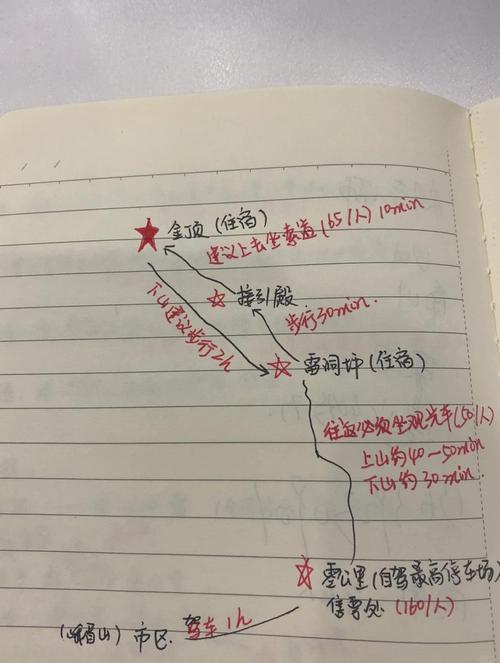 金顶(住宿)
建议上去坐索道(65/人)10min
接引殿
步行30min.
下山建议步行2h
雷洞坪(住宿)
往返必须坐观光车(50/人)
上山约40~50min
下山约30min.
零公里(自驾最高停车场)
售票处(160/人)
(峨眉山)市区. 驾车1h